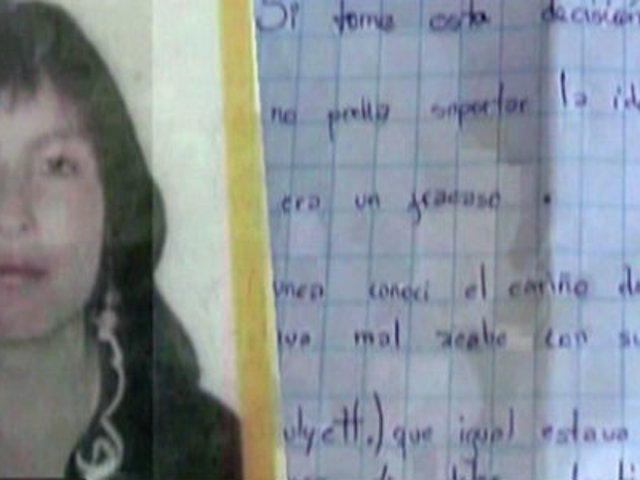 Si tome esta decision
no podia soportar la id
era un fracaso.
unca conoci el cariño de
iva mal acabo con su
ulyett.) que igual estava